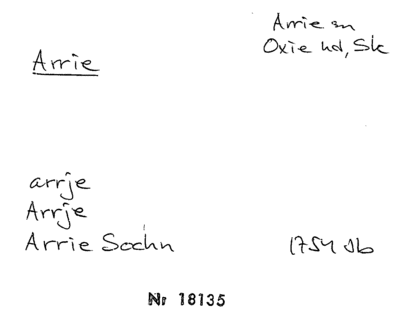 Arrie sn
Oxie hd, Sk
Arrie
arrje
Arrje
Arrie Sochn
1754 Jb
Nr 18135